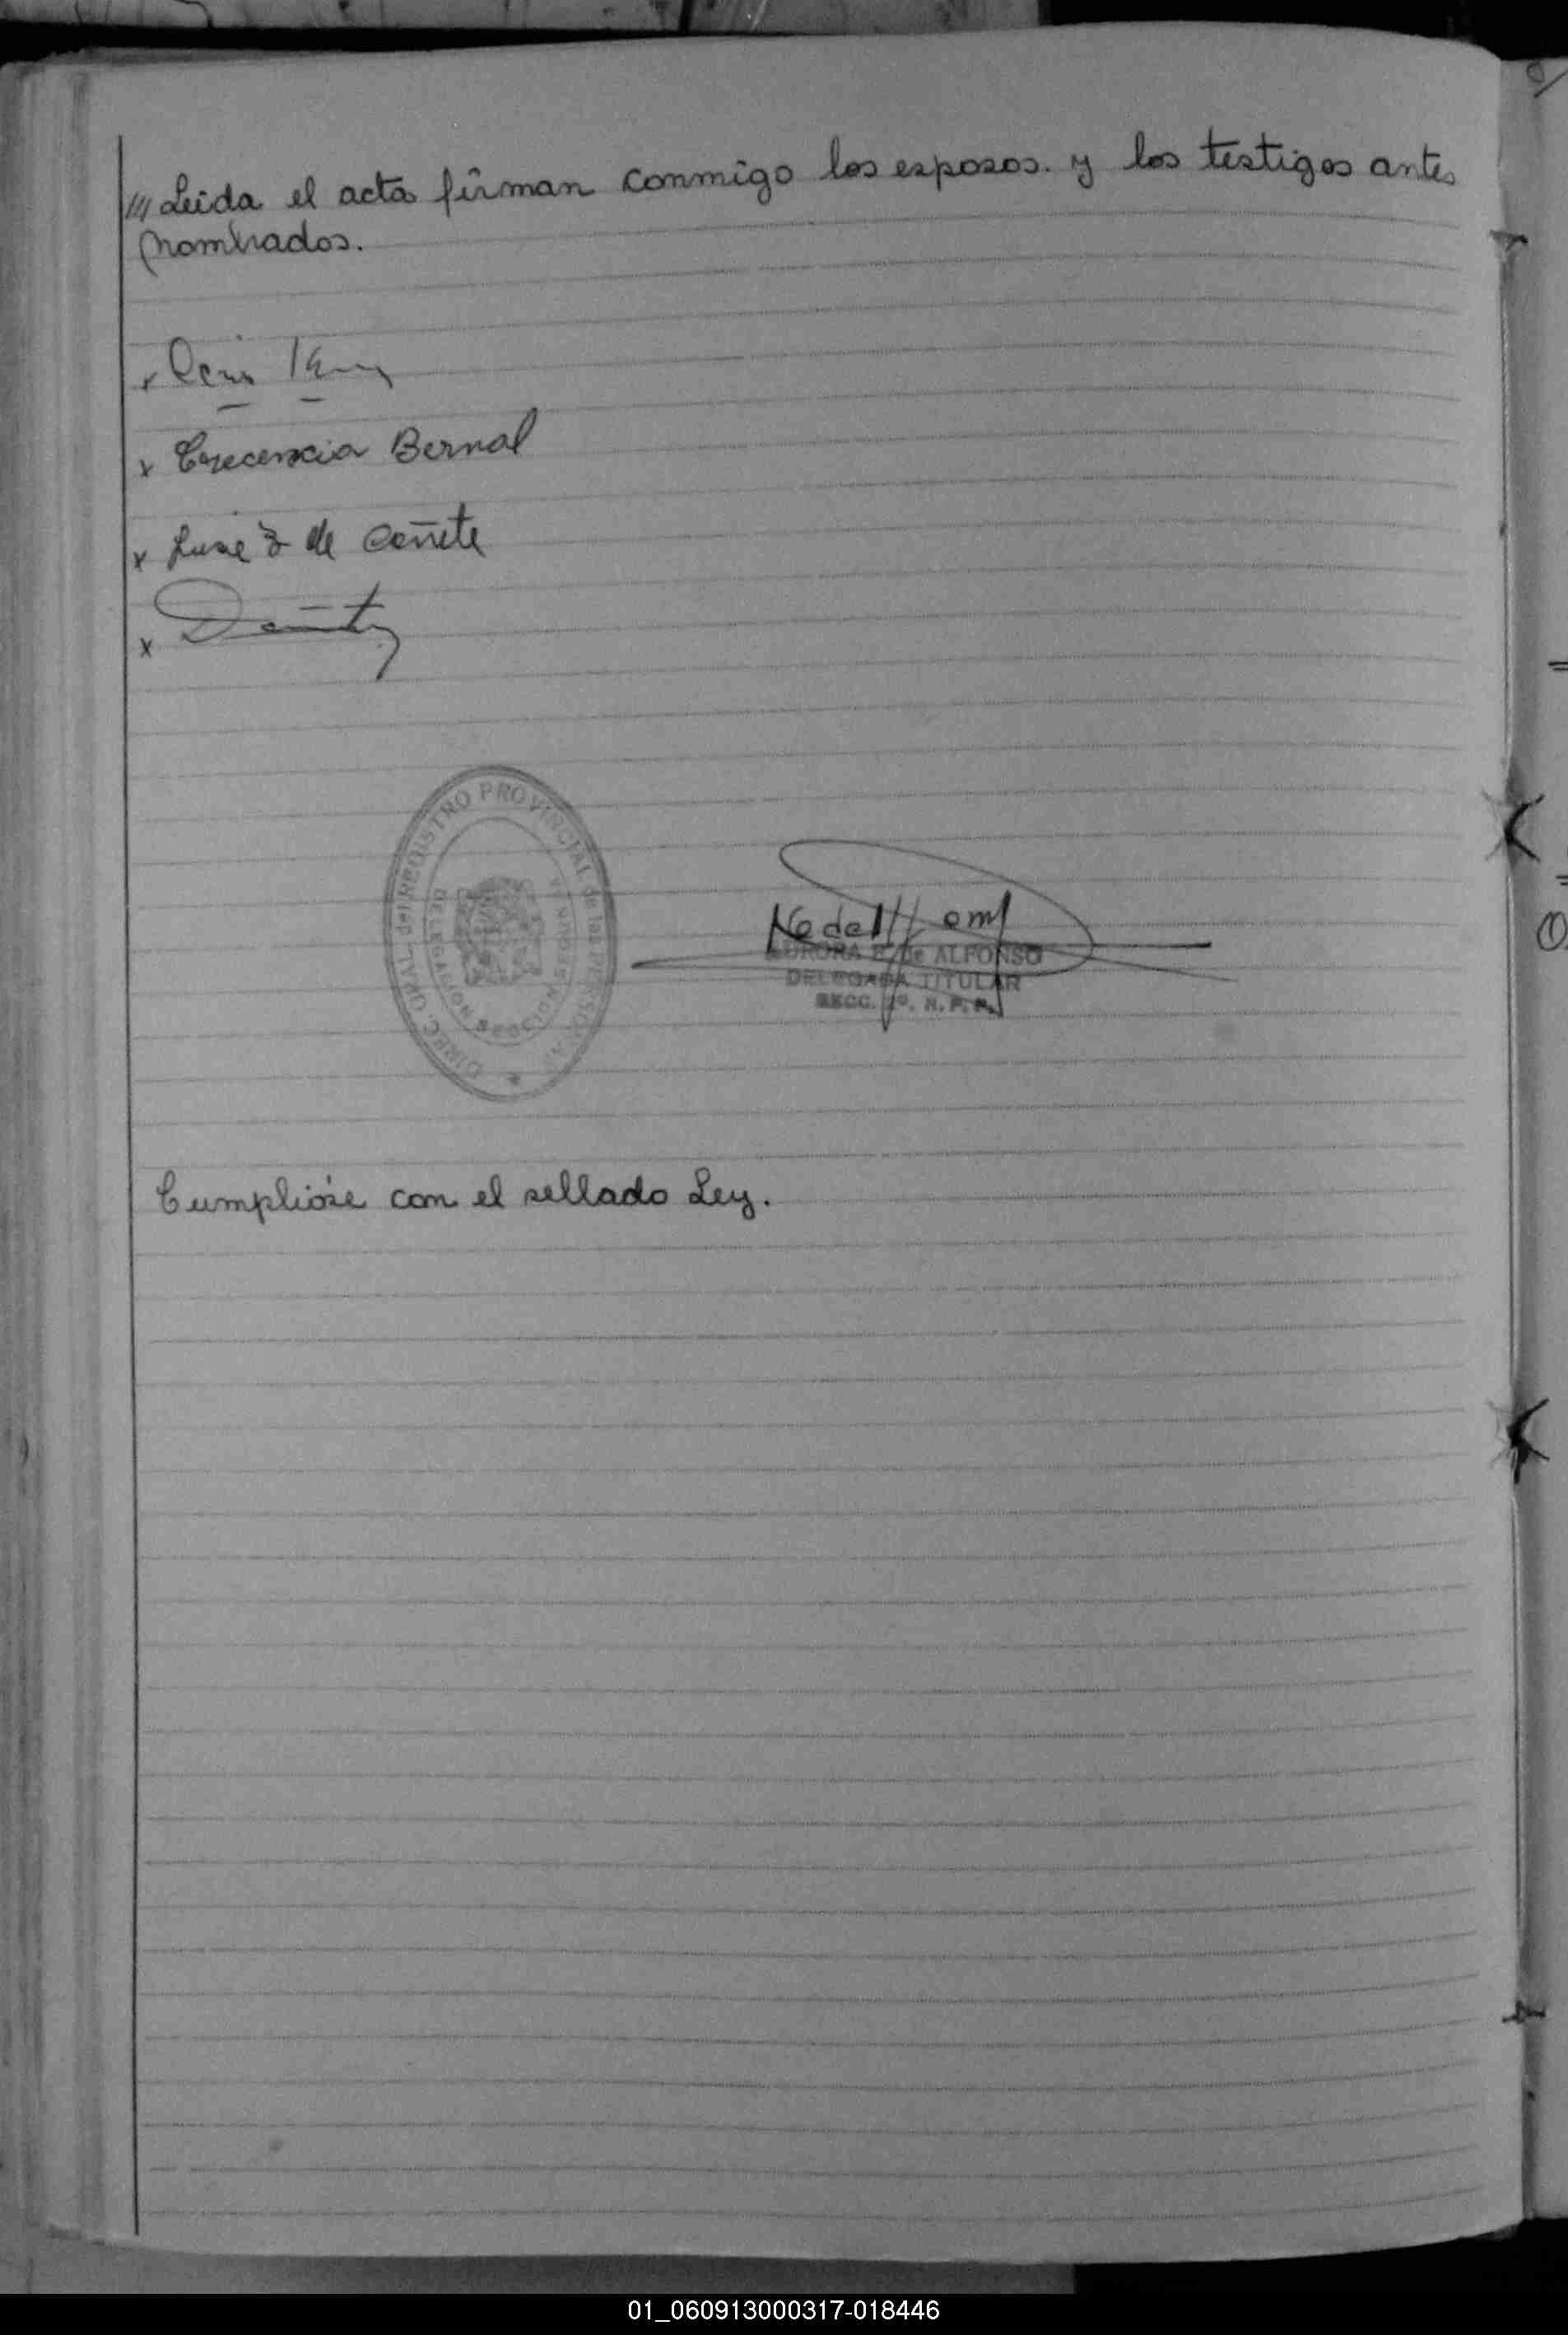 /// Leida el acta firman conmigo los esposos. y los testigos antes
nombrados.
x
x Crecencia Bernal
x de Cañete
x
DIREC. GRAL. del REGISTRO PROVINCIAL de las PERSONAS
DELEGACION SECCION SEGUNDA
AURORA de ALFONSO
DELEGADA TITULAR
SECC. 2º. R. P. P.
Cumplióse con el sellado Ley.
01_060913000317-018446